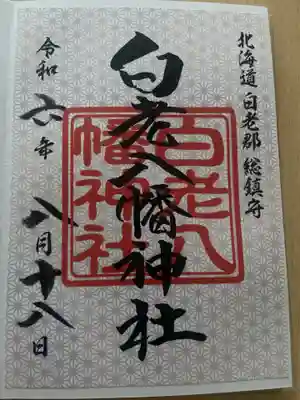 北海道 白老郡 総鎮守
白老八幡神社
白老八
幡神社
令和六年 八月十八日